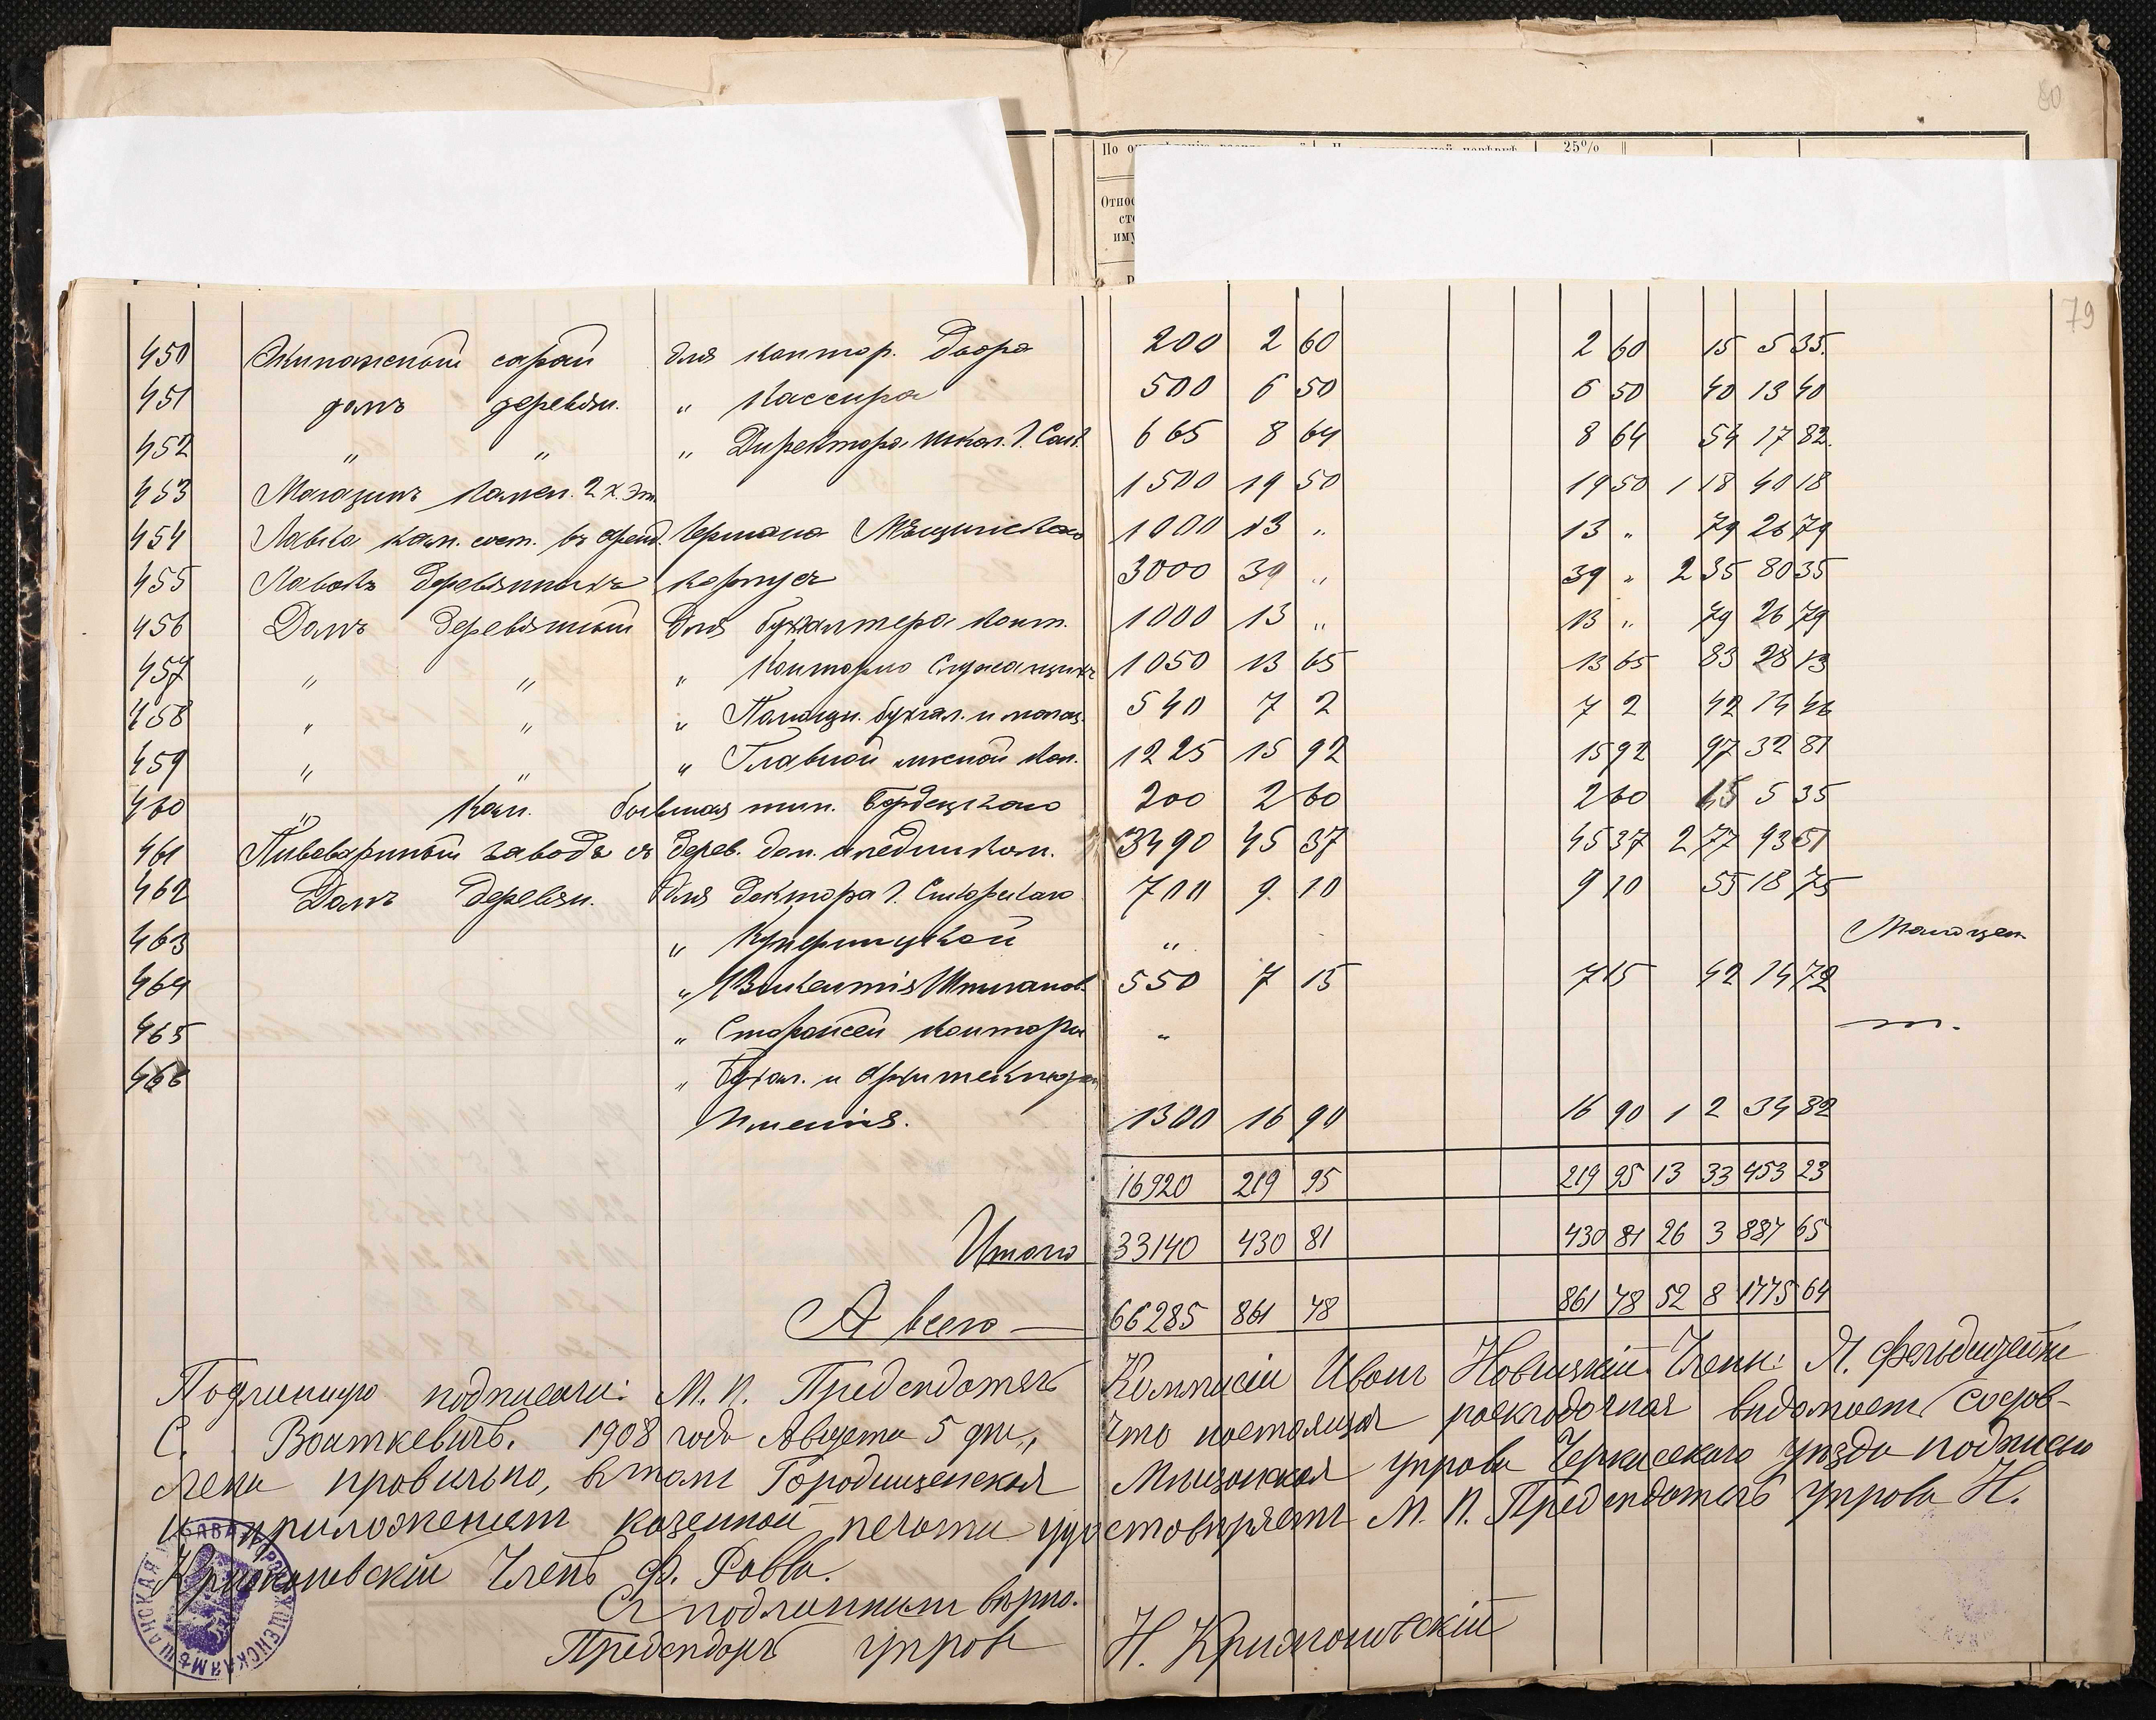 80
25%
79
450 Экипажный сарай для контор. двора 200 2 60 2 60 15 5 35
451 домъ деревян. " Кассира 500 6 50 6 50 40 13 40
452 " " " Директора 665 8 64 8 64 54 17 82
453 Магазинъ камен. 2 х. эт. 1500 19 50 19 50 1 18 40 18
454 Лавка кам. сост. въ аренд. Германа 1000 13 " 13 " 79 26 79
455 Лавокъ деревянныхъ корпусъ 3000 39 " 39 " 2 35 80 35
456 Домъ деревянный для бухгалтера конт. 1000 13 " 13 " 79 26 79
457 " " " Конторно служащихъ 1050 13 65 13 65 83 28 13
458 " " " Помощн. бухгал. и 540 7 2 7 2 42 14 46
459 " " " Главной лѣсной кон. 1225 15 92 15 92 97 32 81
460 " Кам. бывшая 200 2 60 2 60 15 5 35
461 Пивоваренный заводъ съ дерев. дом. и ледником. 3490 45 37 45 37 2 77 93 51
462 Домъ деревян. для доктора 700 9 10 9 10 55 18 75
463 " " Малоцен.
464 " 550 7 15 7 15 42 14 72
465 " Сторожей конторы " т.
466 " Бухгал. и архитектора
имѣнія. 1300 16 90 16 90 1 2 34 82
16920 219 95 219 95 13 33 453 23
Итого 33140 430 81 430 81 26 3 887 65
А всего — 66285 861 78 861 78 52 8 1775 64
Подлинную подписали: М. П. Предсѣдатель Коммисіи Иванъ Новицкій Члены: Я.
С. Воаткевичъ. 1908 года Августа 5 дня, что настоящая раскладочная вѣдомость состав-
лена правильно, въ томъ Городищенская Мѣщанская управа Черкасскаго уѣзда подписью
и приложеніемъ казенной печати удостовѣряетъ М. П. Предсѣдатель управы Н.
Крижановскій Членъ Ф. Равва.
Съ подлиннымъ вѣрно.
Предсѣдатъ управы Н. Крижановскій
МѢЩАНСКАЯ УПРАВА ГОРОДИЩЕНСКАЯ